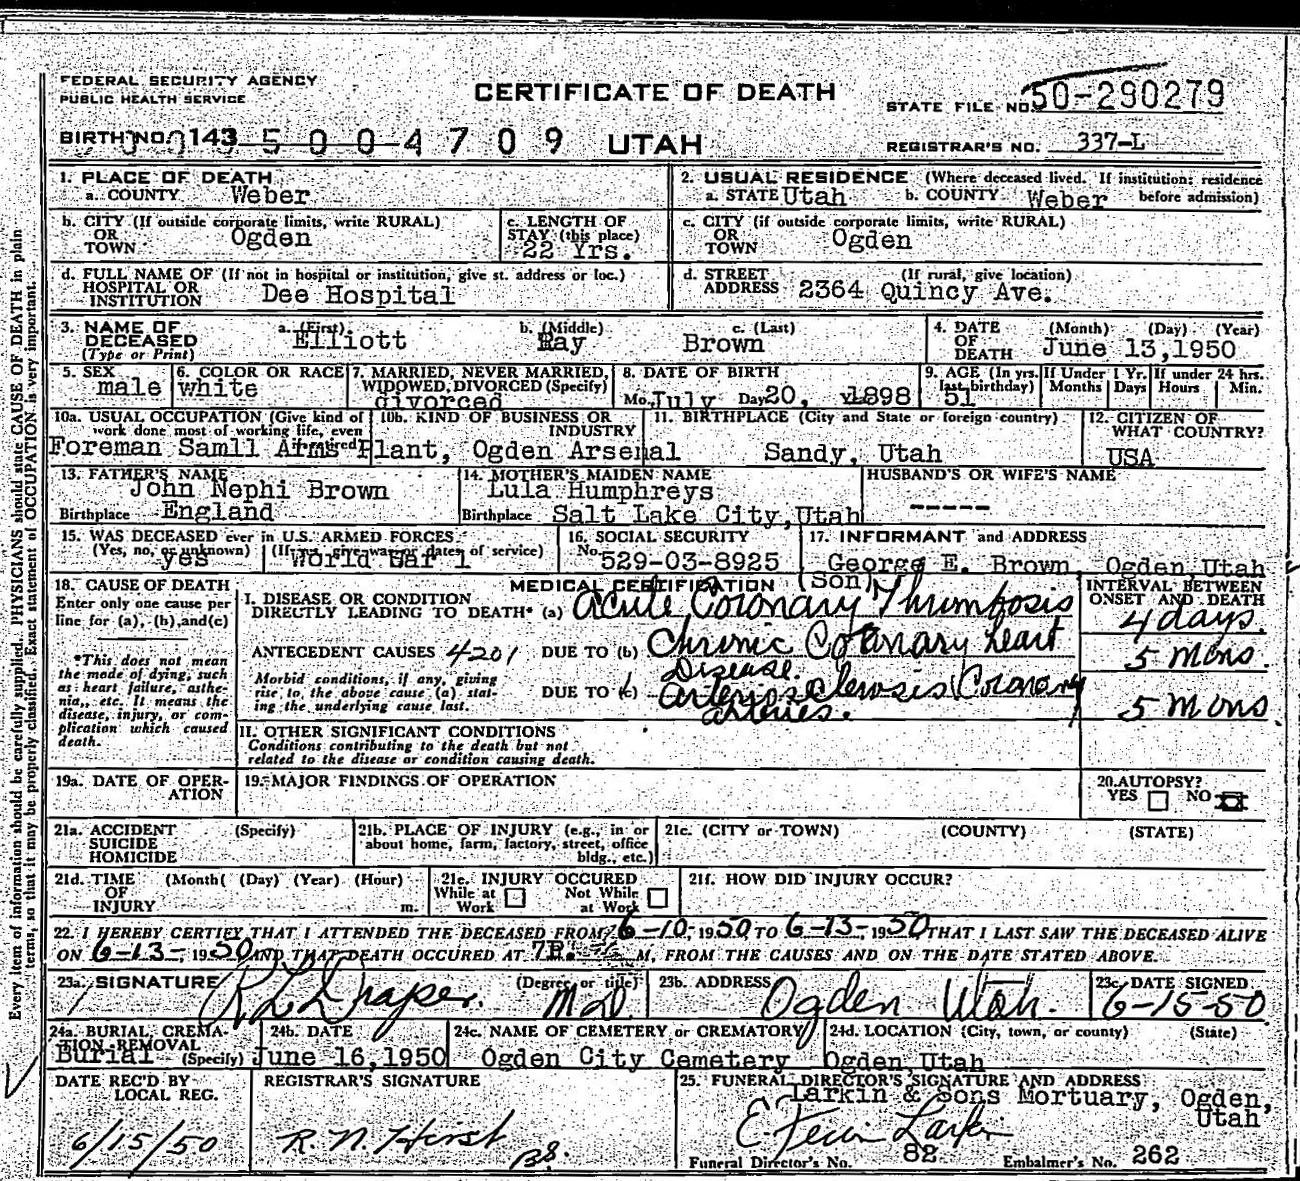 FEDERAL SECURITY AGENCY
PUBLIC HEALTH SERVICE
CERTIFICATE OF DEATH
STATE FILE NO. 50-290279
BIRTH NO. 143 5 0 0 4 7 0 9 UTAH
REGISTRAR'S NO. 337-L
1. PLACE OF DEATH
a. COUNTY Weber
2. USUAL RESIDENCE (Where deceased lived. If institution: residence before admission)
a. STATE Utah b. COUNTY Weber
b. CITY (If outside corporate limits, write RURAL) OR TOWN Ogden
c. LENGTH OF STAY (this place) 22 Yrs.
c. CITY (if outside corporate limits, write RURAL) OR TOWN Ogden
d. FULL NAME OF (If not in hospital or institution, give st. address or loc.)
HOSPITAL OR INSTITUTION Dee Hospital
d. STREET ADDRESS (If rural, give location) 2364 Quincy Ave.
3. NAME OF DECEASED (Type or Print)
a. (First) Elliott b. (Middle) Ray c. (Last) Brown
4. DATE OF DEATH (Month) (Day) (Year) June 13,1950
5. SEX male
6. COLOR OR RACE white
7. MARRIED, NEVER MARRIED, WIDOWED, DIVORCED (Specify) divorced
8. DATE OF BIRTH Mo. July Day 20, 1898
9. AGE (In yrs. last birthday) 51
If Under 1 Yr. Months Days
If under 24 hrs. Hours Min.
10a. USUAL OCCUPATION (Give kind of work done most of working life, even if retired)
10b. KIND OF BUSINESS OR INDUSTRY
Foreman Samll Arms Plant, Ogden Arsenal
11. BIRTHPLACE (City and State or foreign country) Sandy, Utah
12. CITIZEN OF WHAT COUNTRY? USA
13. FATHER'S NAME John Nephi Brown
Birthplace England
14. MOTHER'S MAIDEN NAME Lula Humphreys
Birthplace Salt Lake City,Utah
HUSBAND'S OR WIFE'S NAME -----
15. WAS DECEASED ever in U.S. ARMED FORCES?
(Yes, no, or unknown) yes (If yes, give war or dates of service) World War 1
16. SOCIAL SECURITY No. 529-03-8925
17. INFORMANT and ADDRESS
George E. Brown (Son) Ogden Utah
18. CAUSE OF DEATH
Enter only one cause per line for (a), (b), and (c)
*This does not mean the mode of dying, such as heart failure, asthenia,, etc. It means the disease, injury, or complication which caused death.
MEDICAL CERTIFICATION
INTERVAL BETWEEN ONSET AND DEATH
I. DISEASE OR CONDITION DIRECTLY LEADING TO DEATH* (a) Acute Coronary Thrombosis 4 days.
ANTECEDENT CAUSES 4201 DUE TO (b) Chronic Coronary heart Disease. 5 Mons.
Morbid conditions, if any, giving rise to the above cause (a) stating the underlying cause last.
DUE TO (c) Arteriosclerosis Coronary arteries. 5 Mons.
II. OTHER SIGNIFICANT CONDITIONS
Conditions contributing to the death but not related to the disease or condition causing death.
19a. DATE OF OPERATION
19. MAJOR FINDINGS OF OPERATION
20. AUTOPSY?
YES NO X
21a. ACCIDENT SUICIDE HOMICIDE (Specify)
21b. PLACE OF INJURY (e.g., in or about home, farm, factory, street, office bldg., etc.)
21c. (CITY or TOWN) (COUNTY) (STATE)
21d. TIME OF INJURY (Month( (Day) (Year) (Hour) m.
21e. INJURY OCCURED
While at Work Not While at Work
21f. HOW DID INJURY OCCUR?
22. I HEREBY CERTIFY THAT I ATTENDED THE DECEASED FROM 6-10-, 1950, TO 6-13-, 1950 THAT I LAST SAW THE DECEASED ALIVE
ON 6-13-, 1950 AND THAT DEATH OCCURED AT 7P. M, FROM THE CAUSES AND ON THE DATE STATED ABOVE.
23a. SIGNATURE R L Draper. (Degree or title) M.D
23b. ADDRESS Ogden Utah.
23c. DATE SIGNED 6-15-50
24a. BURIAL, CREMATION REMOVAL (Specify) Burial
24b. DATE June 16,1950
24c. NAME OF CEMETERY or CREMATORY Ogden City Cemetery
24d. LOCATION (City, town, or county) (State) Ogden,Utah
DATE REC'D BY LOCAL REG. 6/15/50
REGISTRAR'S SIGNATURE R. N. Hirst
25. FUNERAL DIRECTOR'S SIGNATURE AND ADDRESS
Larkin & Sons Mortuary, Ogden, Utah
Larkin
Funeral Director's No. 82 Embalmer's No. 262
Every item of information should be carefully supplied. PHYSICIANS should state CAUSE OF DEATH in plain
terms, so that it may be properly classified. Exact statement of OCCUPATION is very important.